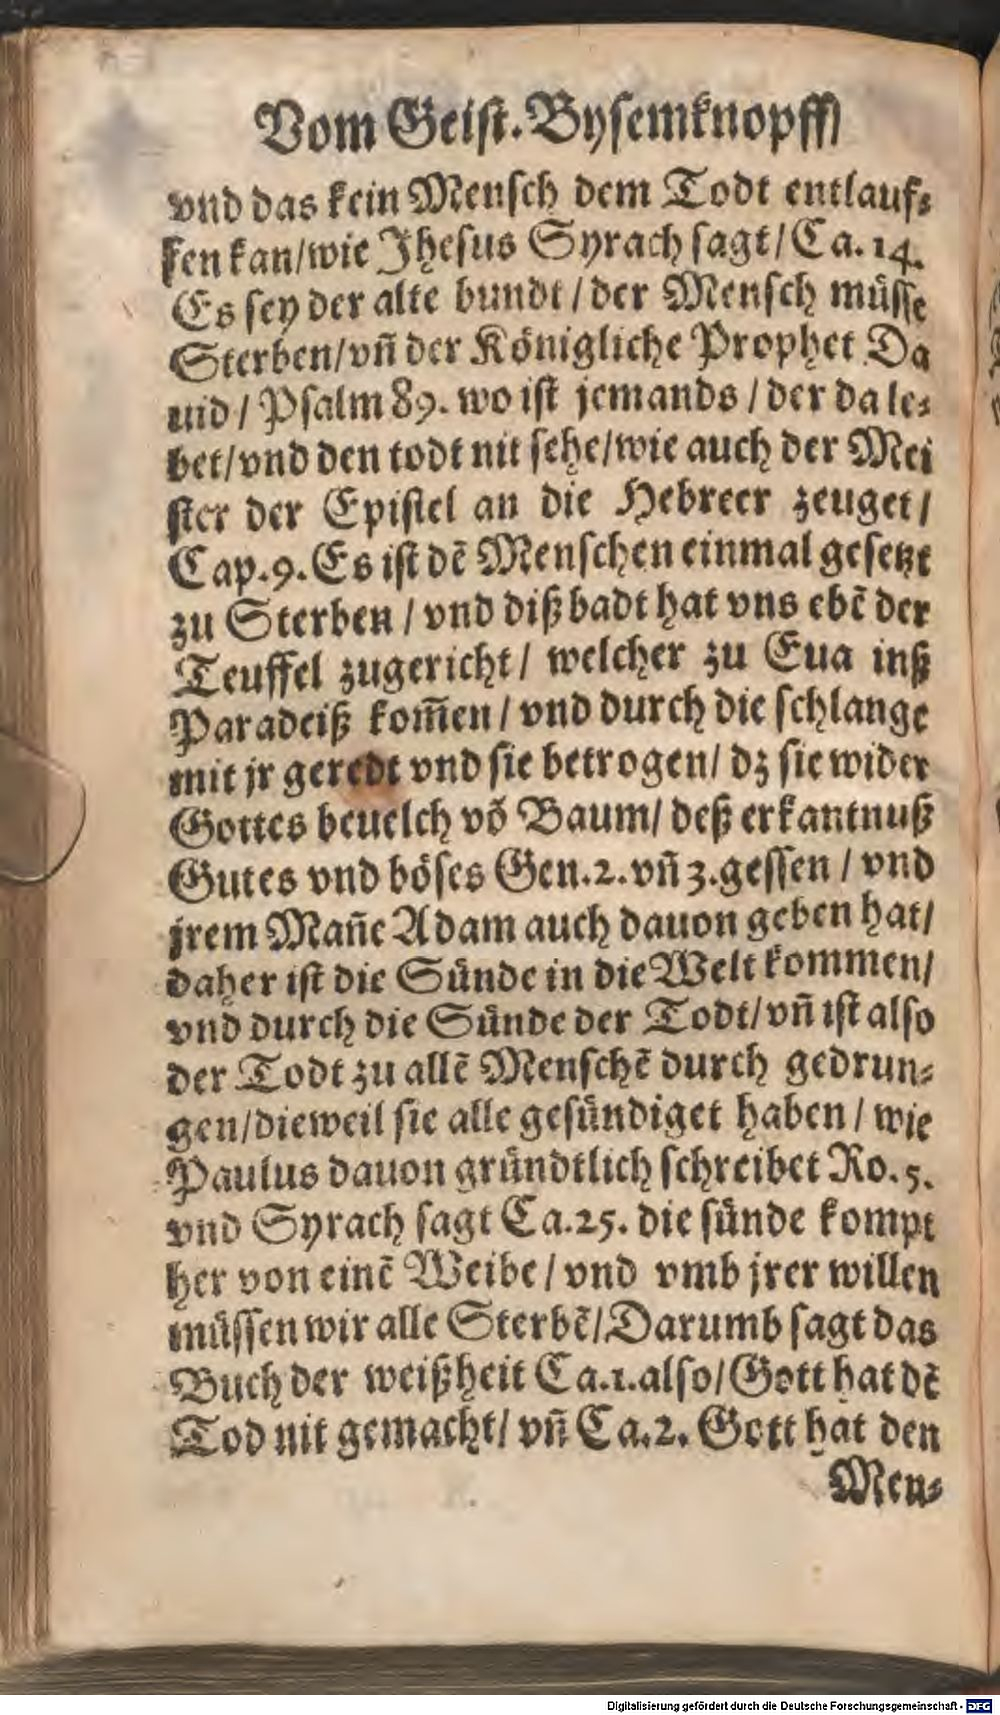 Vom Geist. Bysemknopff/
vnd das kein Mensch dem Todt entlauf⸗
fen kan/wie Jhesus Syrach sagt/Ca. 14.
Es sey der alte bundt/der Mensch müsse
Sterben/vñ der Königliche Prophet Da
uid/Psalm 89. wo ist jemands/der da le⸗
bet/vnd den todt nit sehe/wie auch der Mei
ster der Epistel an die Hebreer zeuget/
Cap. 9. Es ist dē Menschen einmal gesetzt
zu Sterben/vnd diß badt hat vns ebē der
Teuffel zugericht/ welcher zu Eua inß
Paradeiß kom̃en/vnd durch die schlange
mit jr geredt vnd sie betrogen/dz sie wider
Gottes beuelch võ Baum/deß erkantnuß
Gutes vnd böses Gen. 2. vñ 3. gessen/vnd
jrem Mañe Adam auch dauon geben hat/
daher ist die Sünde in die Welt kommen/
vnd durch die Sünde der Todt/vñ ist also
der Todt zu allē Menschē durch gedrun⸗
gen/dieweil sie alle gesündiget haben/wie
Paulus dauon gründtlich schreibet Ro. 5.
vnd Syrach sagt Ca. 25. die sünde kompt
her von einē Weibe/vnd vmb jrer willen
müssen wir alle Sterbē/Darumb sagt das
Buch der weißheit Ca. 1. also/Gott hat dē
Tod nit gemacht/vñ Ca. 2. Gott hat den
Men⸗
Digitalisierung gefördert durch die Deutsche Forschungsgemeinschaft - DFG